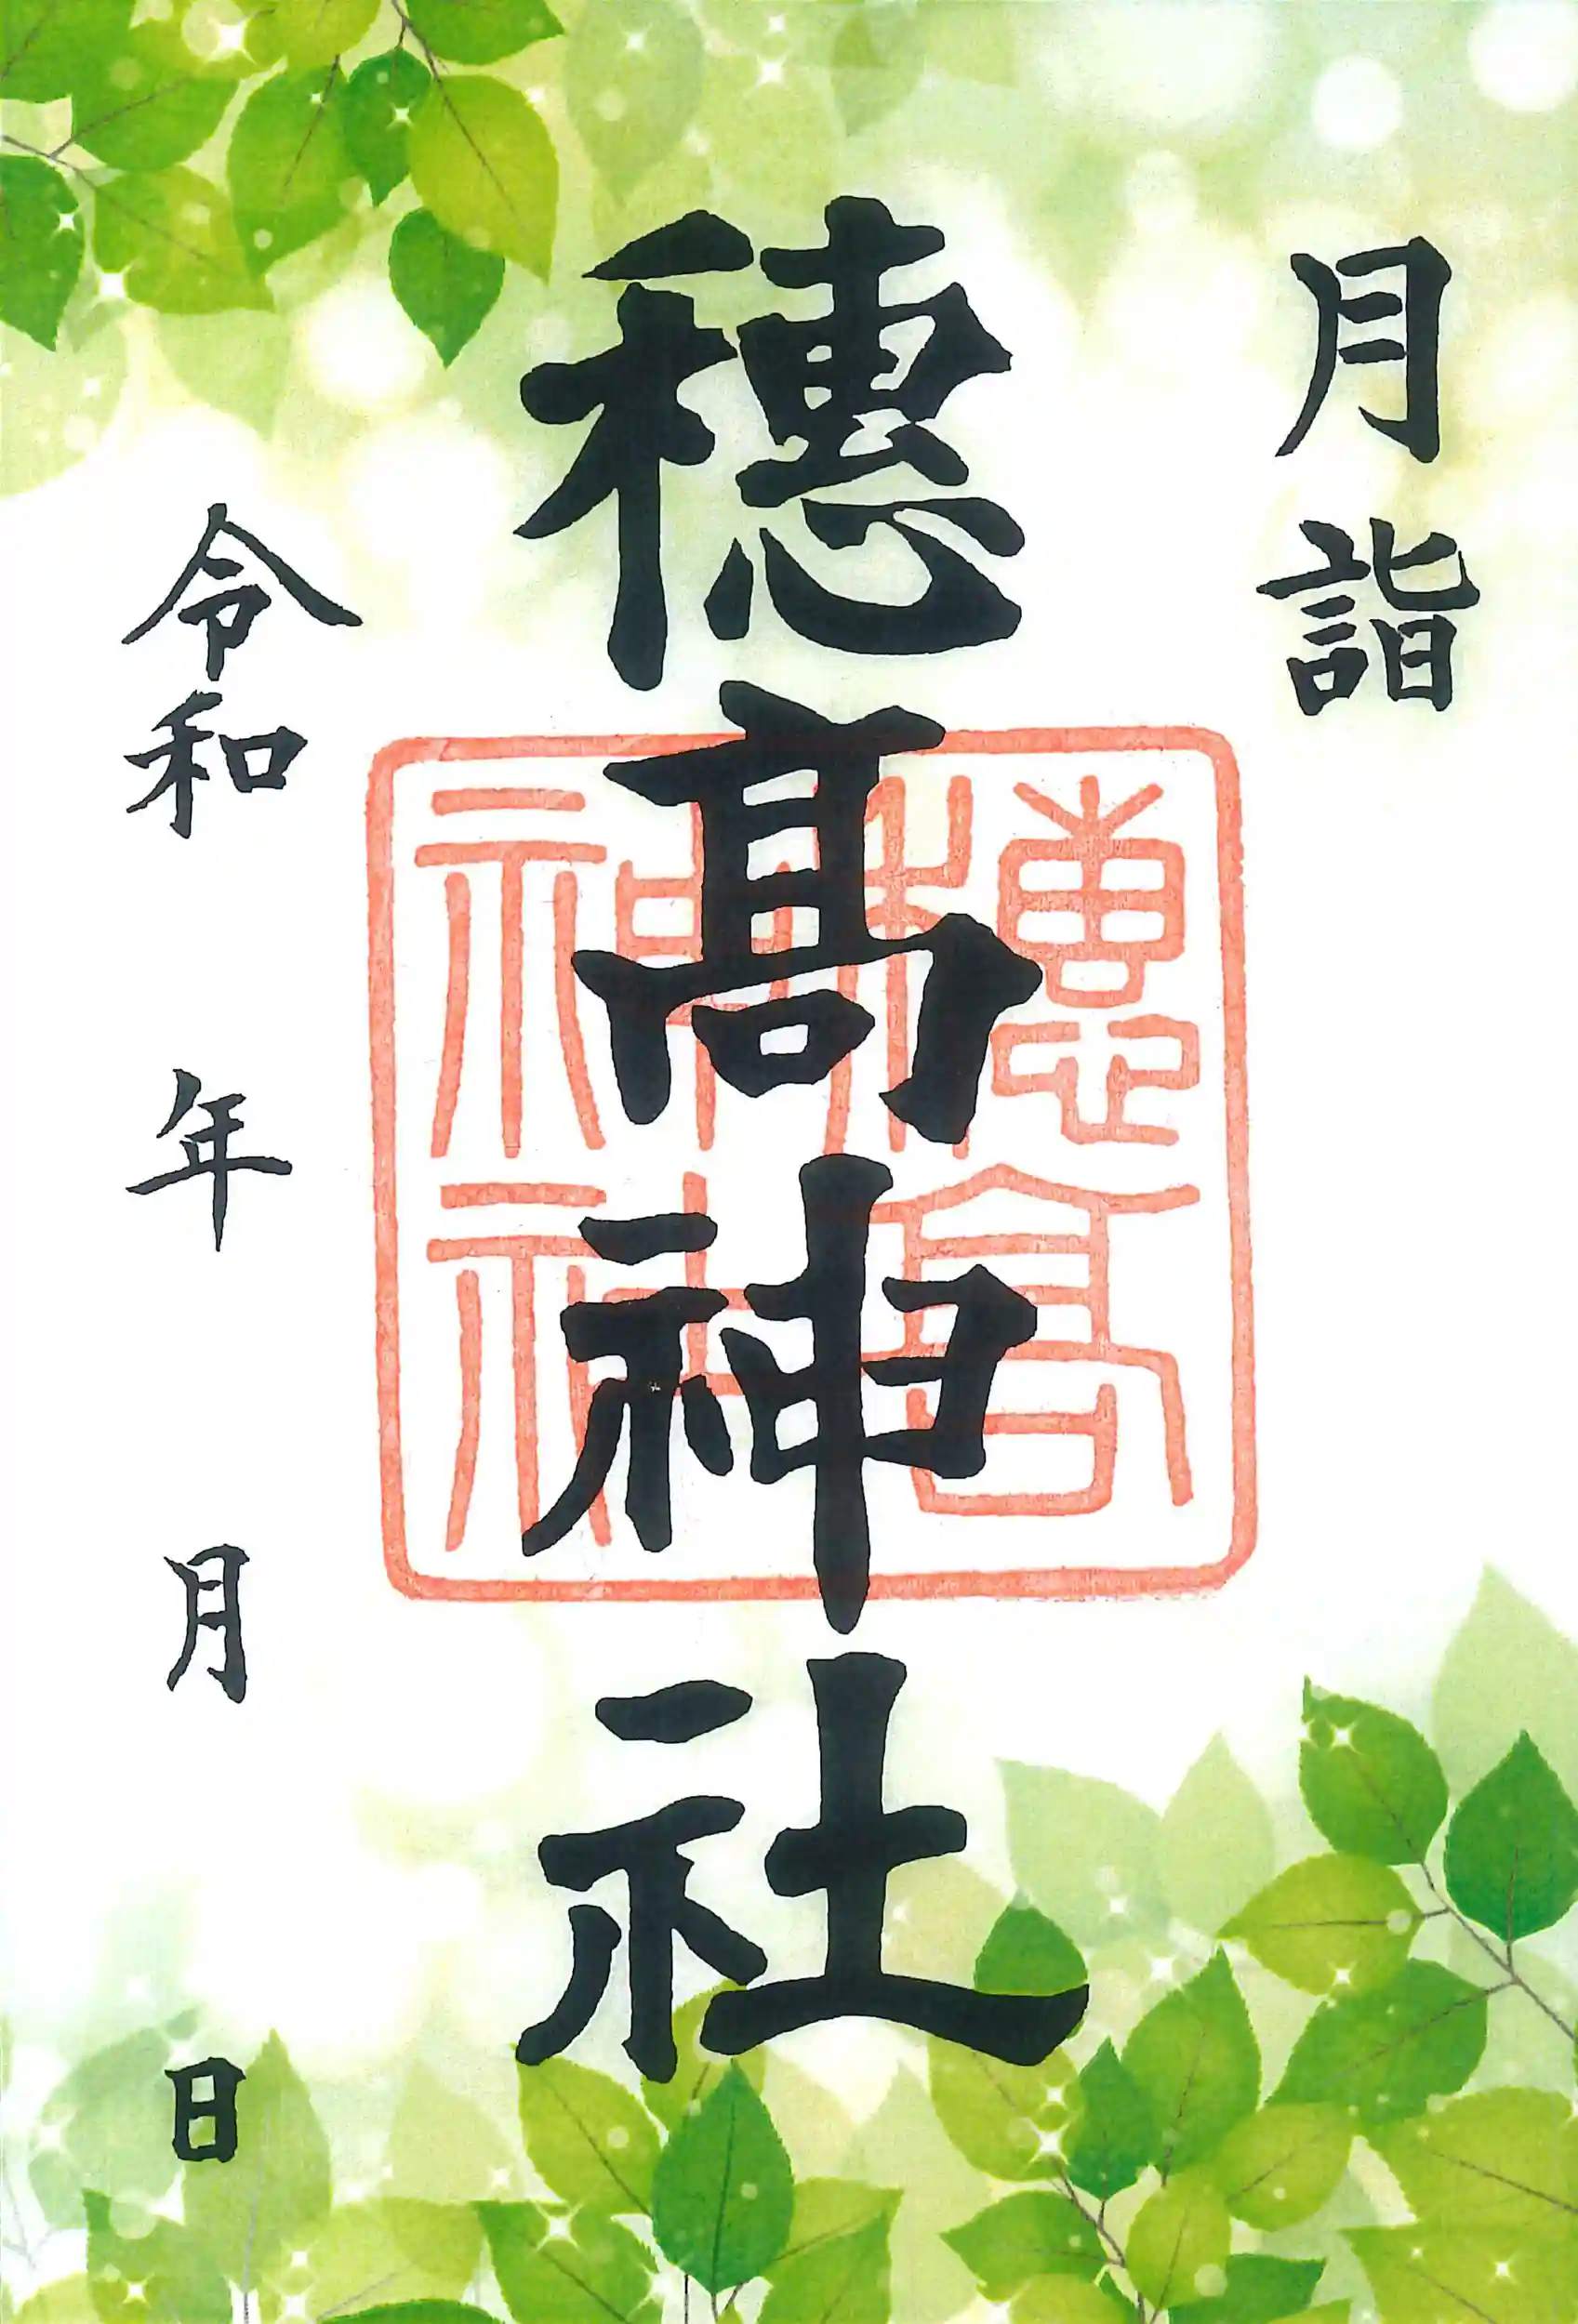 月詣
穗髙神社
穗高
神社
令和 年 月 日